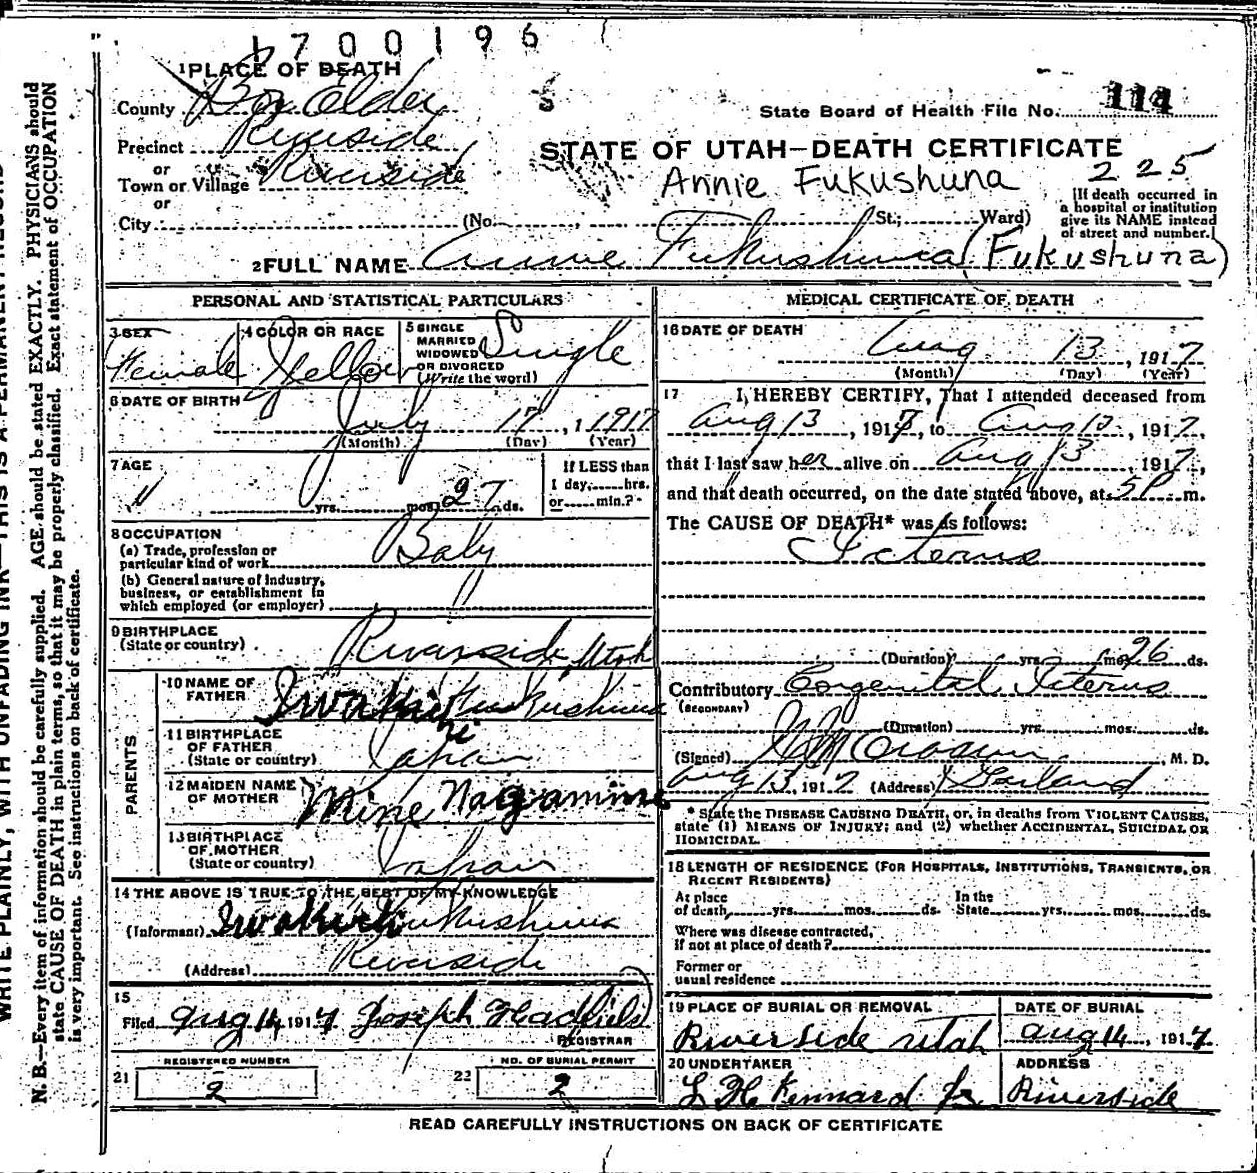 1700196
1 PLACE OF DEATH
County Box Elder
State Board of Health File No. 114
Precinct Riverside
STATE OF UTAH—DEATH CERTIFICATE
or
Town or Village Riverside
Annie Fukushuna 225
or
City (No. St.; Ward)
[If death occurred in
a hospital or institution
give its NAME instead
of street and number.]
2 FULL NAME Annie Fukushuna (Fukushuna)
PERSONAL AND STATISTICAL PARTICULARS
3 SEX Female
4 COLOR OR RACE Yellow
5 SINGLE
MARRIED
WIDOWED
OR DIVORCED
(Write the word) Single
6 DATE OF BIRTH
July 17, 1917
(Month) (Day) (Year)
7 AGE
yrs. mos. 27 ds.
If LESS than
1 day, hrs.
or min.?
8 OCCUPATION
(a) Trade, profession or
particular kind of work Baby
(b) General nature of Industry,
business, or establishment in
which employed (or employer) "
9 BIRTHPLACE
(State or country) Riverside Utah
PARENTS
10 NAME OF
FATHER Iwakichi Fukushuna
11 BIRTHPLACE
OF FATHER
(State or country) Japan
12 MAIDEN NAME
OF MOTHER Mine Nagamine
13 BIRTHPLACE
OF MOTHER
(State or country) Japan
14 THE ABOVE IS TRUE TO THE BEST OF MY KNOWLEDGE
(Informant) Iwakichi Fukushuna
(Address) Riverside
15
Filed Aug 14, 1917 Joseph Hadfield
REGISTRAR
REGISTERED NUMBER
21 2
NO. OF BURIAL PERMIT
22 2
MEDICAL CERTIFICATE OF DEATH
16 DATE OF DEATH
Aug 13, 1917
(Month) (Day) (Year)
17 I HEREBY CERTIFY, That I attended deceased from
Aug 13, 1917, to Aug 13, 1917,
that I last saw her alive on Aug 13 1917,
and that death occurred, on the date stated above, at 5 P m.
The CAUSE OF DEATH* was as follows:
Icterus
(Duration) yrs. mos. 26 ds.
Contributory Congenital Icterus
(SECONDARY)
(Duration) yrs. mos. ds.
(Signed) M. D.
Aug 13, 1917 (Address) Garland
* State the DISEASE CAUSING DEATH, or, in deaths from VIOLENT CAUSES,
state (1) MEANS OF INJURY; and (2) whether ACCIDENTAL, SUICIDAL OR
HOMICIDAL.
18 LENGTH OF RESIDENCE (FOR HOSPITALS, INSTITUTIONS, TRANSIENTS, OR
RECENT RESIDENTS)
At place In the
of death, yrs. mos. ds. State yrs. mos. ds.
Where was disease contracted,
if not at place of death?
Former or
usual residence
19 PLACE OF BURIAL OR REMOVAL
Riverside Utah
DATE OF BURIAL
Aug 14, 1917
20 UNDERTAKER
L H Kennard Jr
ADDRESS
Riverside
READ CAREFULLY INSTRUCTIONS ON BACK OF CERTIFICATE
WRITE PLAINLY, WITH UNFADING INK—THIS IS A PERMANENT RECORD
N. B.—Every item of information should be carefully supplied. AGE should be stated EXACTLY. PHYSICIANS should
state CAUSE OF DEATH in plain terms, so that it may be properly classified. Exact statement of OCCUPATION
is very important. See instructions on back of certificate.